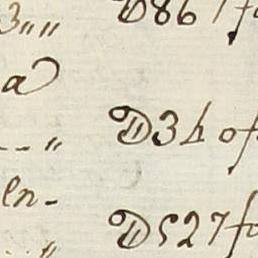 3„„ D86 f
a
-- „ D34 of
en-
„ D527 fo